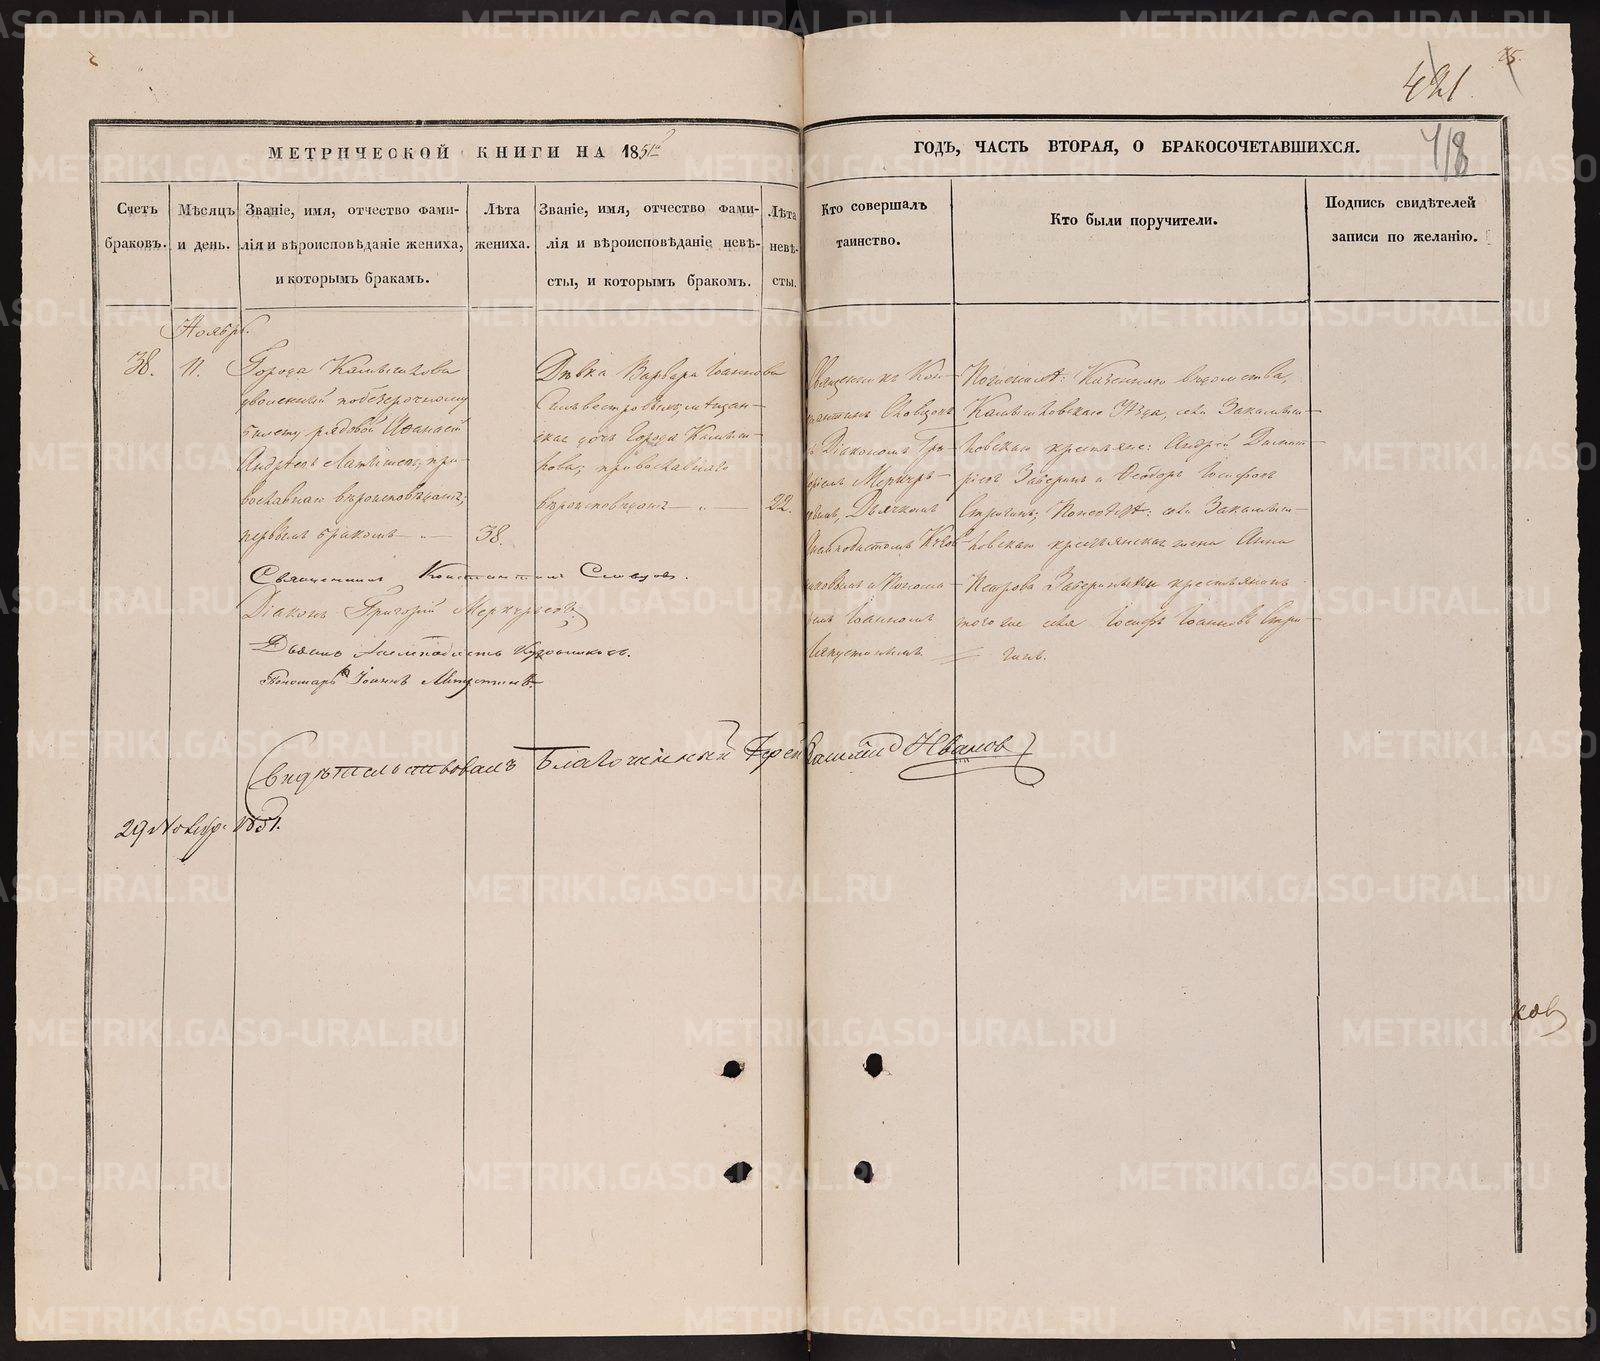 421
75.
418
МЕТРИЧЕСКОЙ КНИГИ НА 1851й
ГОДЪ, ЧАСТЬ ВТОРАЯ, О БРАКОСОЧЕТАВШИХСЯ.
Счетъ
браковъ.
Мѣсяцъ
и день.
Званіе, имя, отчество фами-
лія и вѣроисповѣданіе жениха,
и которымъ бракамъ.
Лѣта
жениха.
Званіе, имя, отчество фами-
лія и вѣроисповѣданіе невѣ-
сты, и которымъ бракомъ.
Лѣта
невѣ-
сты.
Кто совершалъ
таинство.
Кто были поручители.
Подпись свидѣтелей
записи по желанію.
Ноябрь.
38.
11.
Города Камышлова
уволенный
билету рядовой Афанасій
Андреевъ пра-
вославнаго вѣроисповѣданія;
первымъ бракомъ
38.
Дѣвка Варвара Іоаннова
Сильвестровыхъ, мѣщан-
ская дочь Города Камыш-
лова; православнаго
вѣроисповѣданія
22.
Священникъ Кон-
стантинъ Словцовъ
съ Діакономъ Гри-
горіемъ Меркурь-
евымъ, Дьячкомъ
и Понома-
ремъ Іоанномъ
По женихѣ: Казеннаго вѣдомства,
Камышловскаго Уѣзда, села Закамыш-
ловскаго крестьяне: Андрей
и Ѳеодоръ Іосифовъ
Стричинъ; По невѣстѣ: села Закамыш-
ловскаго крестьянская жена Анна
Петрова крестьянинъ
того же села Іосифъ Іоанновъ Стри-
чинъ.
Священникъ Константинъ Словцовъ.
Діаконъ Григорій Меркурьевъ
Дьячекъ
Пономарь Іоаннъ
Свидѣтельствовалъ Благочинный Іерей Иванов
29 Ноября 1851.
ков
METRIKI.GASO-URAL.RU